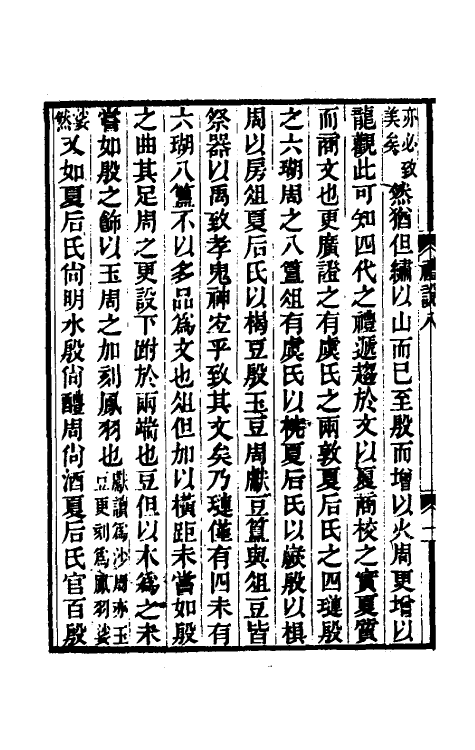 禮說八 十一
亦必致美矣然猶但繡以山而已至殷而增以火周更增以
龍觀此可知四代之禮遞趨於文以夏商校之實夏質
而商文也更廣證之有虞氏之兩敦夏后氏之四璉殷
之六瑚周之八簋俎有虞氏以梡夏后氏以嶡殷以椇
周以房俎夏后氏以楬豆殷玉豆周獻豆簋與俎豆皆
祭器以禹致孝鬼神宏乎致其文矣乃璉僅有四未有
六瑚八簋不以多品為文也俎但加以橫距未嘗如殷
之曲其足周之更設下跗於兩端也豆但以木為之未
嘗如殷之飾以玉周之加刻鳳羽也獻讀為沙周亦玉豆更刻為鳳羽娑
娑然又如夏后氏尚明水殷尚醴周尚酒夏后氏官百殷